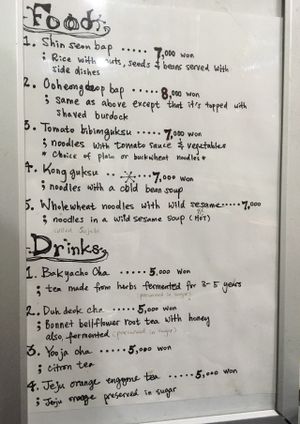 Food
1. Shin seon bap ..... 7,000 won
; Rice with nuts, seeds & beans served with
side dishes
2. Ooheongdeop bap ..... 8,000 won
; same as above except that it's topped with
shaved burdock
3. Tomato bibimguksu ..... 7,000 won
; noodles with tomato sauce & vegetables
* Choice of plain or buckwheat noodles *
4. Kong guksu ... 7,000 won
; noodles with a cold bean soup
5. Wholewheat noodles with wild sesame.....7,000
; noodles in a wild sesame soup (Hot)
Drinks
1. Bakyacho Cha ...... 5,000 won
; tea made from herbs fermented for 3-5 years
(preserved in sugar)
2. Duh deok cha ..... 5,000 won
; Bonnet bellflower root tea with honey
also fermented (preserved in sugar)
3. Yooja cha ...... 5,000 won
; citron tea
4. Jeju orange engyme tea .....5,000 won
; Jeju orange preserved in sugar